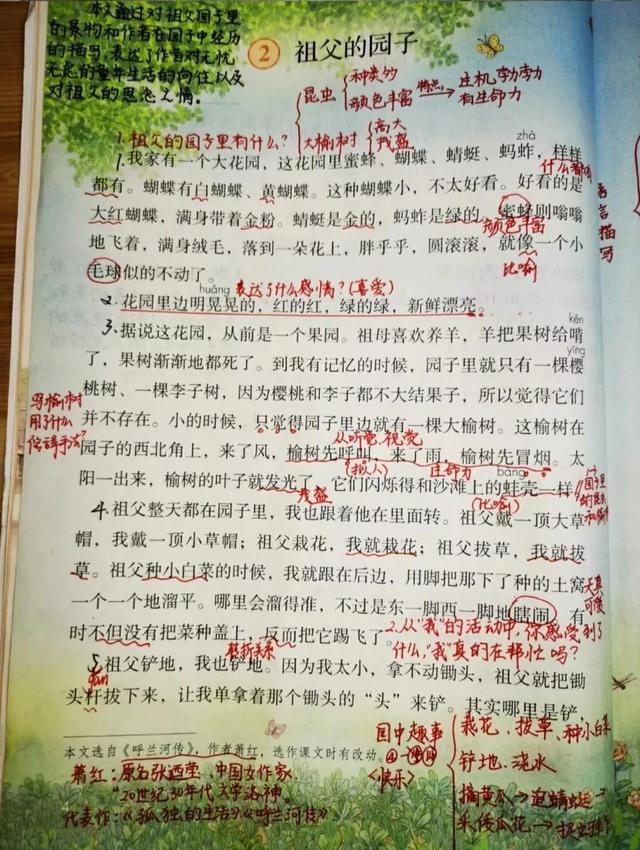 本文通过对祖父园子里
的景物和作者在园子中经历
的描写,表达了作者对无忧
无虑的童年生活的向往以及
对祖父的思念之情。
2 祖父的园子
昆虫 种类多
颜色丰富 特点 生机勃勃
有生命力
1.祖父的园子里有什么? 大榆树 高大
茂盛
zhà
1.我家有一个大花园,这花园里蜜蜂、蝴蝶、蜻蜓、蚂蚱,样样
什么都有
都有。蝴蝶有白蝴蝶、黄蝴蝶。这种蝴蝶小,不太好看。好看的是
大红蝴蝶,满身带着金粉。蜻蜓是金的,蚂蚱是绿的,蜜蜂则嗡嗡
颜色丰富
地飞着,满身绒毛,落到一朵花上,胖乎乎,圆滚滚,就像一个小
比喻
毛球似的不动了。
huǎng 表达了什么感情?(喜爱)
2.花园里边明晃晃的,红的红,绿的绿,新鲜漂亮。
kěn
3.据说这花园,从前是一个果园。祖母喜欢养羊,羊把果树给啃
yīng
了,果树渐渐地都死了。到我有记忆的时候,园子里就只有一棵樱
桃树、一棵李子树,因为樱桃和李子都不大结果子,所以觉得它们
写榆树时
用了什么
修辞手法?
并不存在。小的时候,只觉得园子里边就有一棵大榆树。这榆树在
从听觉 视觉
园子的西北角上,来了风,榆树先呼叫,来了雨,榆树先冒烟。太
(拟人) 生命力 bàng
阳一出来,榆树的叶子就发光了,它们闪烁得和沙滩上的蚌壳一样
茂盛 (比喻)
4.祖父整天都在园子里,我也跟着他在里面转。祖父戴一顶大草
帽,我戴一顶小草帽;祖父栽花,我就栽花;祖父拔草,我就拔
草。祖父种小白菜的时候,我就跟在后边,用脚把那下了种的土窝
天真
可爱
一个一个地溜平。哪里会溜得准,不过是东一脚西一脚地瞎闹。有
时不但没有把菜种盖上,反而把它踢飞了。
转折关系
2.从“我”的活动中,你感受到了
什么,“我”真的在帮忙吗?
5.祖父铲地,我也铲地。因为我太小,拿不动锄头,祖父就把锄
gǎn
头杆拔下来,让我单拿着那个锄头的“头”来铲。其实哪里是铲
本文选自《呼兰河传》,作者萧红,选作课文时有改动。
萧红:原名张迺莹、中国女作家.
“20世纪30年代文学洛神”
代表作:《孤独的生活》《呼兰河传》
园中趣事
<快乐>
栽花、拔草、种小白菜
铲地、浇水
摘黄瓜→追蜻蜓→
采倭瓜花→捉
语言描写